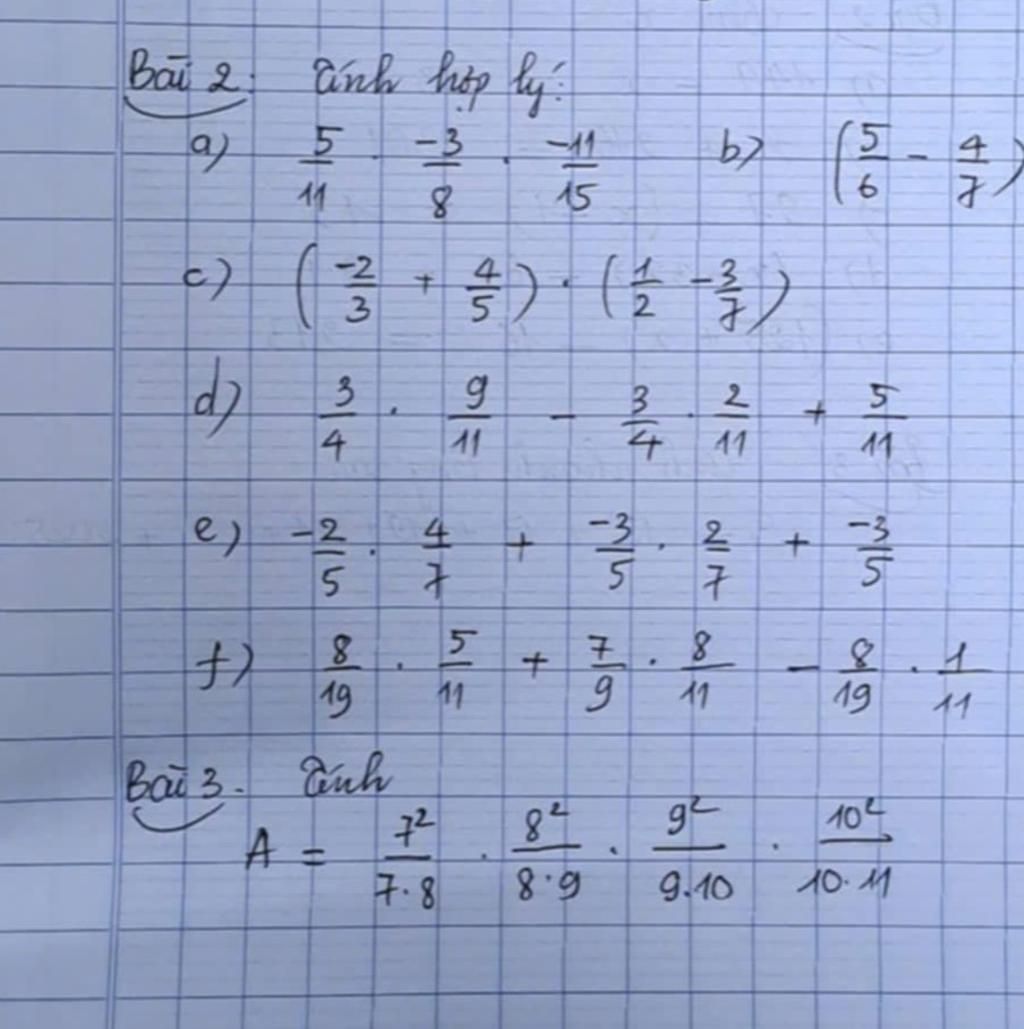 Bài 2: Tính hợp lý:
a) 5/11 · -3/8 · -11/15 b) (5/6 - 4/7)
c) (-2/3 + 4/5) · (1/2 - 3/7)
d) 3/4 · 9/11 - 3/4 · 2/11 + 5/11
e) -2/5 · 4/7 + -3/5 · 2/7 + -3/5
f) 8/19 · 5/11 + 7/9 · 8/11 - 8/19 · 1/11
Bài 3. Tính
A = 7²/7·8 · 8²/8·9 · 9²/9.10 · 10²/10.11